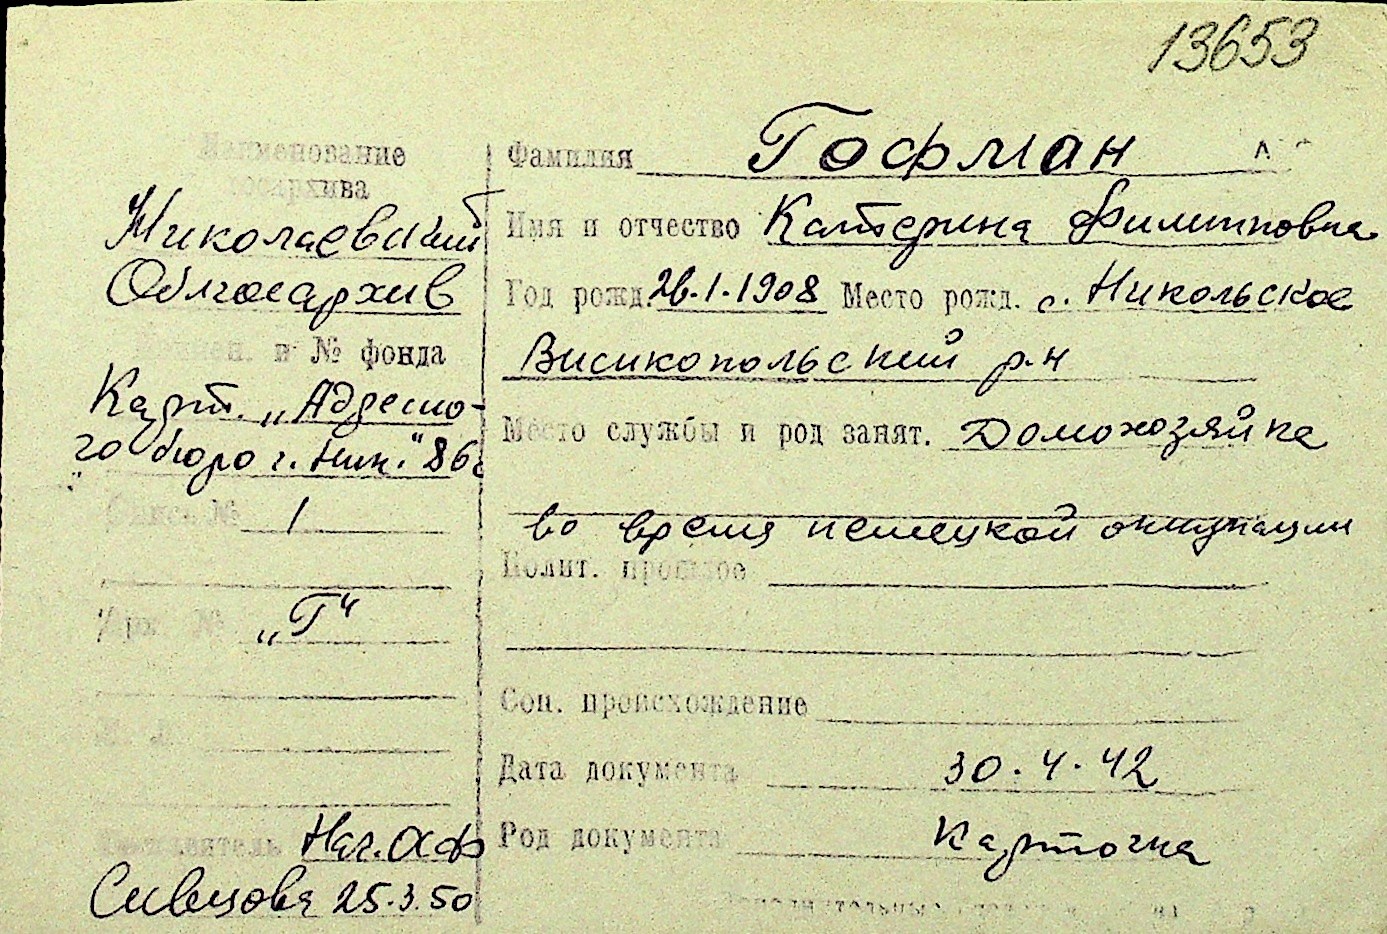 13653
Наименование
госархива
Николаевский
Облгосархив
Наимен. и № фонда
Карт. „Адресно-
го бюро г. Ник." 86
Опись № 1
Арх. № „Г"
Составитель Нач. ОАФ
Сивцова 25.3.50
Фамилия Гофман
Имя и отчество Катерина Филипповна
Год рожд. 26.1.1908 Место рожд. с. Никольское
Висикопольский р-н
Место службы и род занят. Домохозяйка
во время немецкой оккупации
Полит. прошлое
Соц. происхождение
Дата документа 30.4.42
Род документа карточка